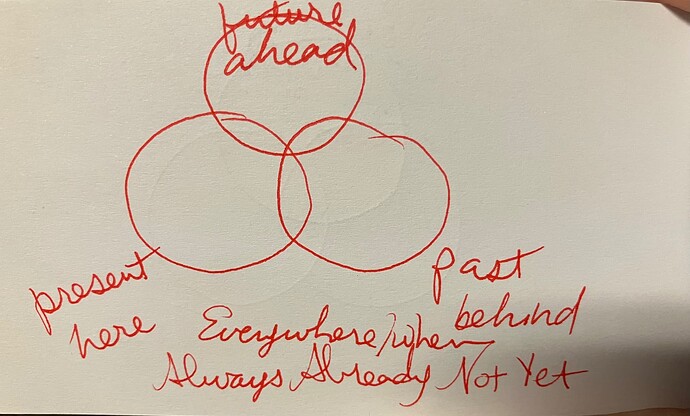 future
ahead
present
here
past
behind
Everywhere/when
Always Already Not Yet